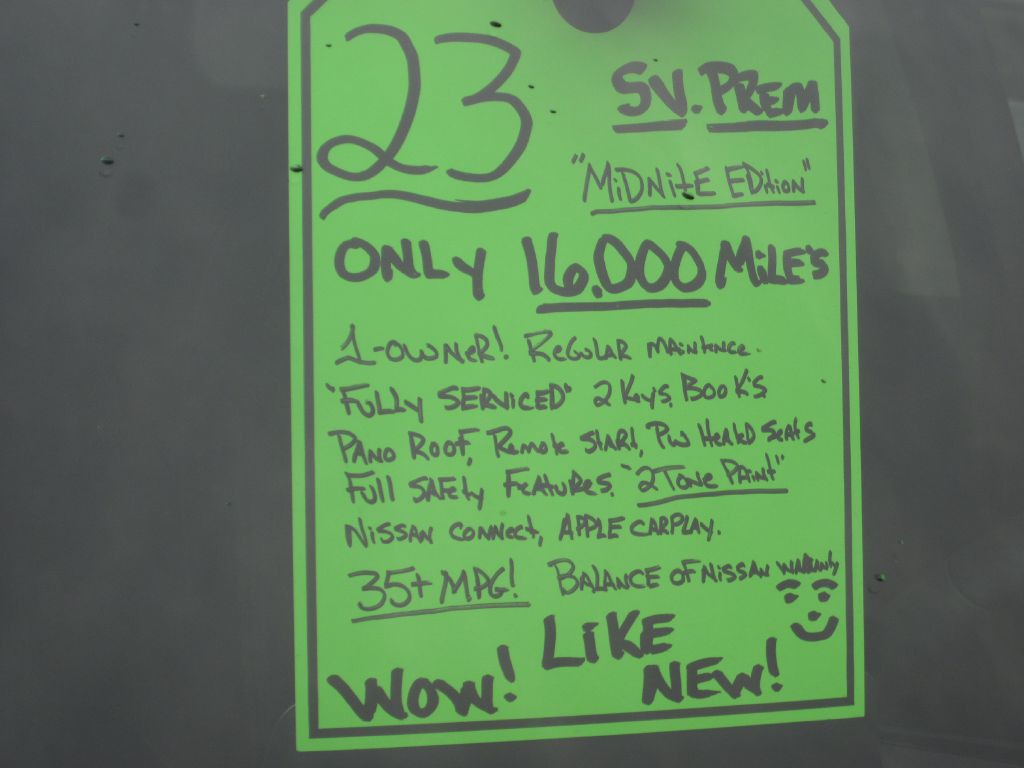 23
SV. PREM
"MiDNitE EDition"
ONLY 16,000 MiLE'S
1-OWNER! REGULAR MAINTENCE.
"FULLY SERVICED" 2 Keys, BOOK'S
PANO ROOF, Remote START, PW Heated Seats
Full SAFEty FEATURES. "2 Tone PAINT"
NiSSAN CONNECt, APPLE CARPLAY.
35+ MPG! BALANCE OF NISSAN WARRANty
WOW! LiKE
NEW!